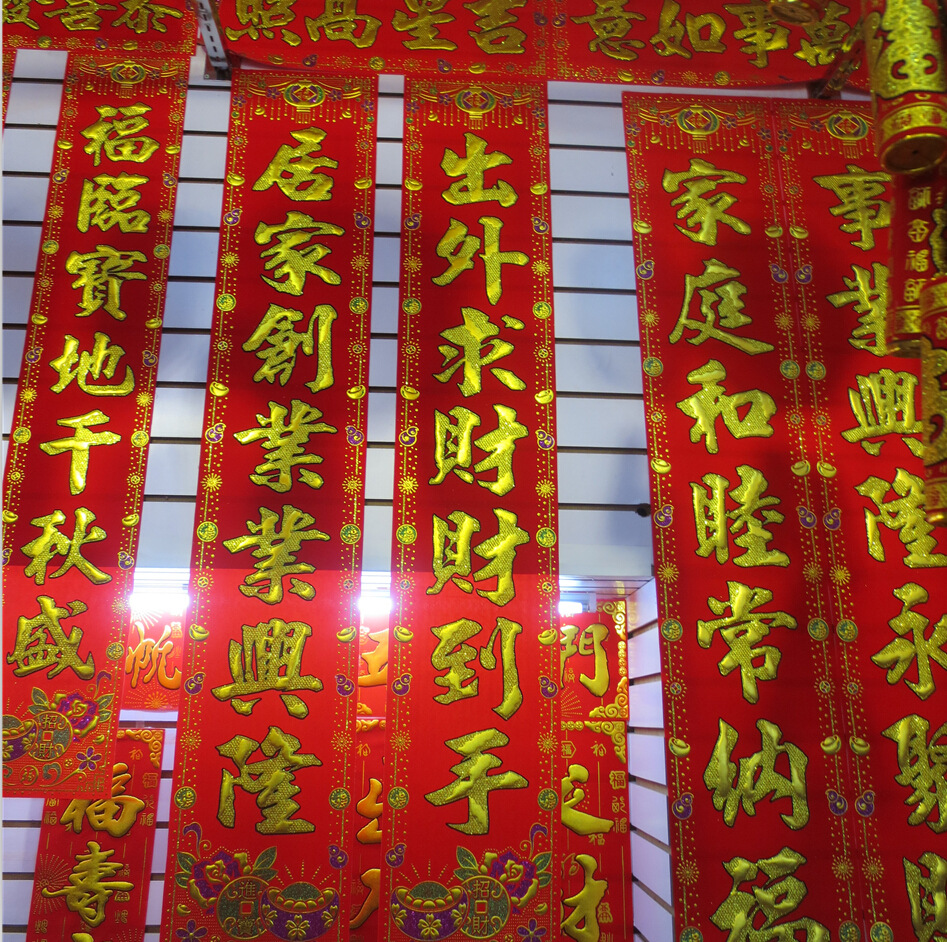 萬事如意
吉星高照
事業興隆永
家庭和睦常納福
出外求財財到手
居家創業業興隆
福臨寶地千秋盛
門
福壽
招財
招財